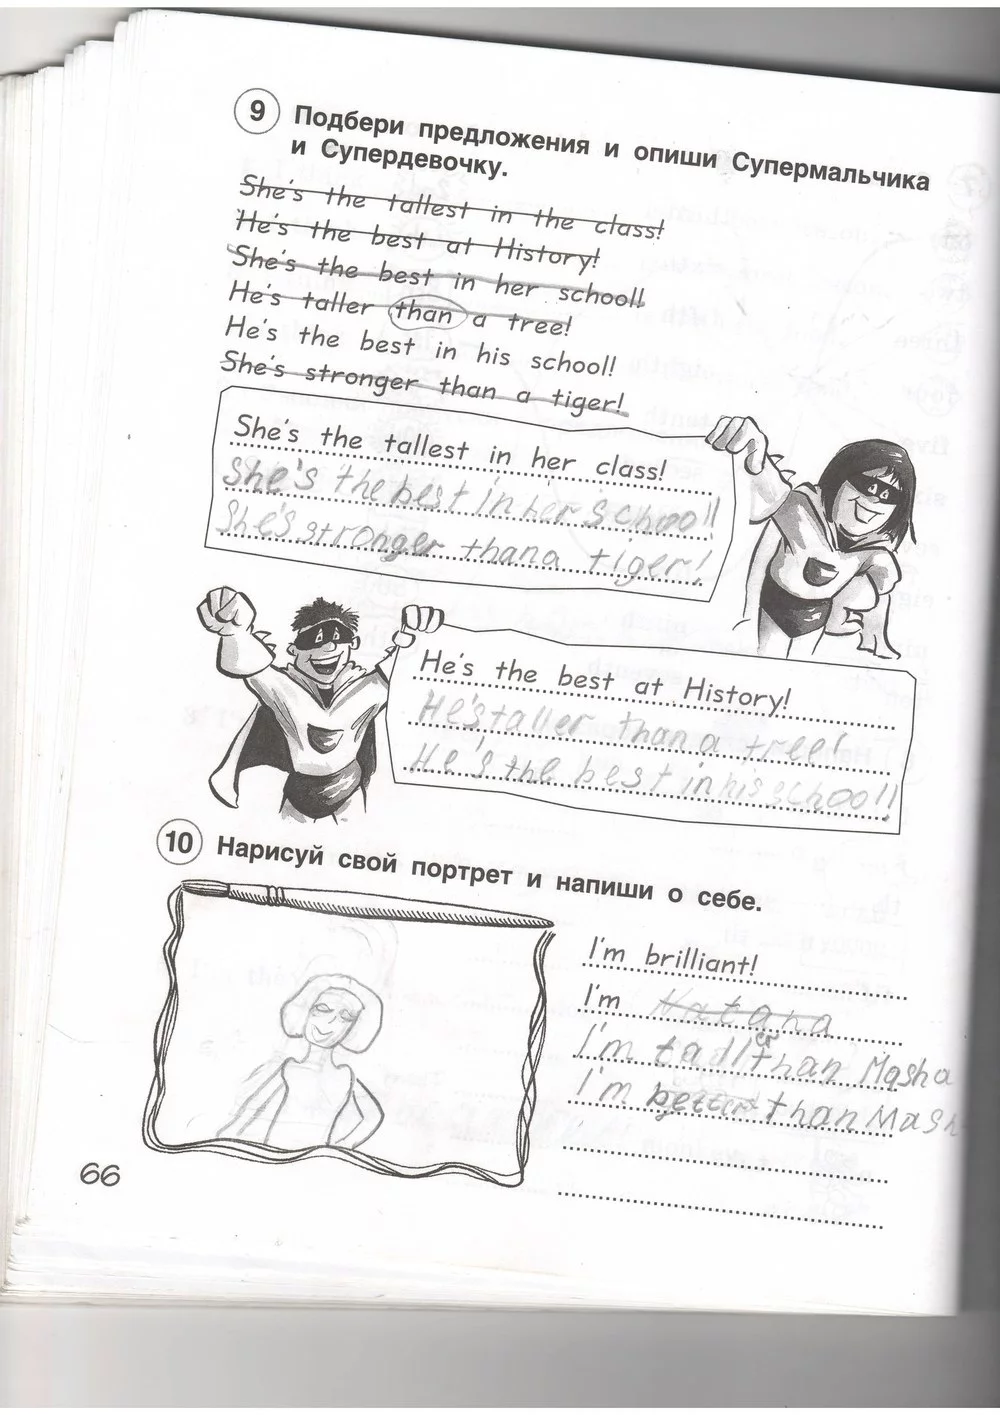 9 Подбери предложения и опиши Супермальчика
и Супердевочку.
She's the tallest in the class!
He's the best at History!
She's the best in her school!
He's taller than a tree!
He's the best in his school!
She's stronger than a tiger!
She's the tallest in her class!
She's the best in her school!
She's stronger than a tiger!
He's the best at History!
He's taller than a tree!
He's the best in his school!
10 Нарисуй свой портрет и напиши о себе.
I'm brilliant!
I'm Natana
I'm than Masha
I'm better than Mash
66